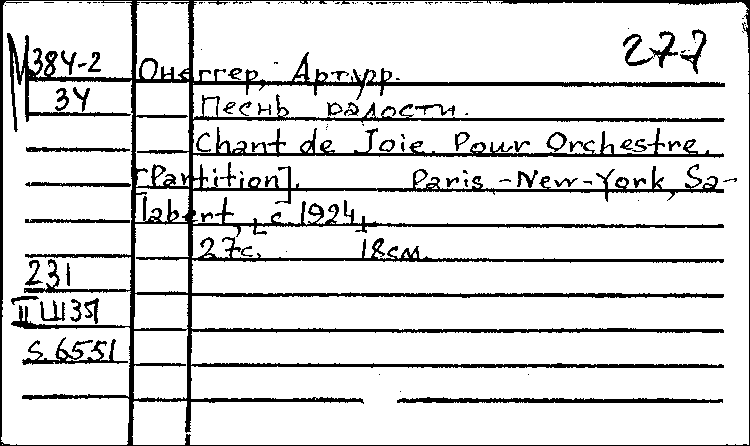 277
M 384-2 Онеггер, Артур.
34 Песнь радости.
Chant de Joie. Pour Orchestre.
[Partition]. Paris,-New-York, Sa-
labert, [c 1924]
27с. 18см.
231
II Ш37
S.6551